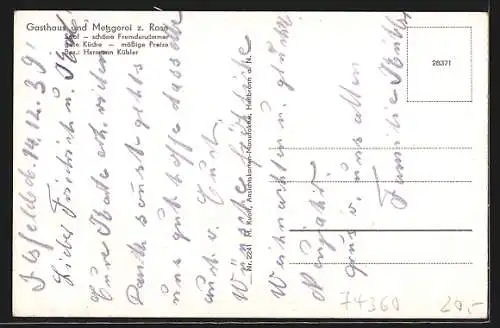 Gasthaus und Metzgerei z. Rose
Saal – schöne Fremdenzimmer
gute Küche – mäßige Preise
Bes.: Hermann Kübler
Nr. 2241 M. Kunt, Ansichtskarten-Manufaktur, Heilbronn a. N.
28371
Ilsfeld d. 14.12.39
Lieber Friedrich u.
Eure Karte erh. vielen
Dank sonst gehts
uns gut hoffe dasselbe
auch v. Euch.
Wünsche fröhliche
Weihnachten u. glückl.
Neujahr
Gruß v. uns allen
Familie Kübler
74360
20,-